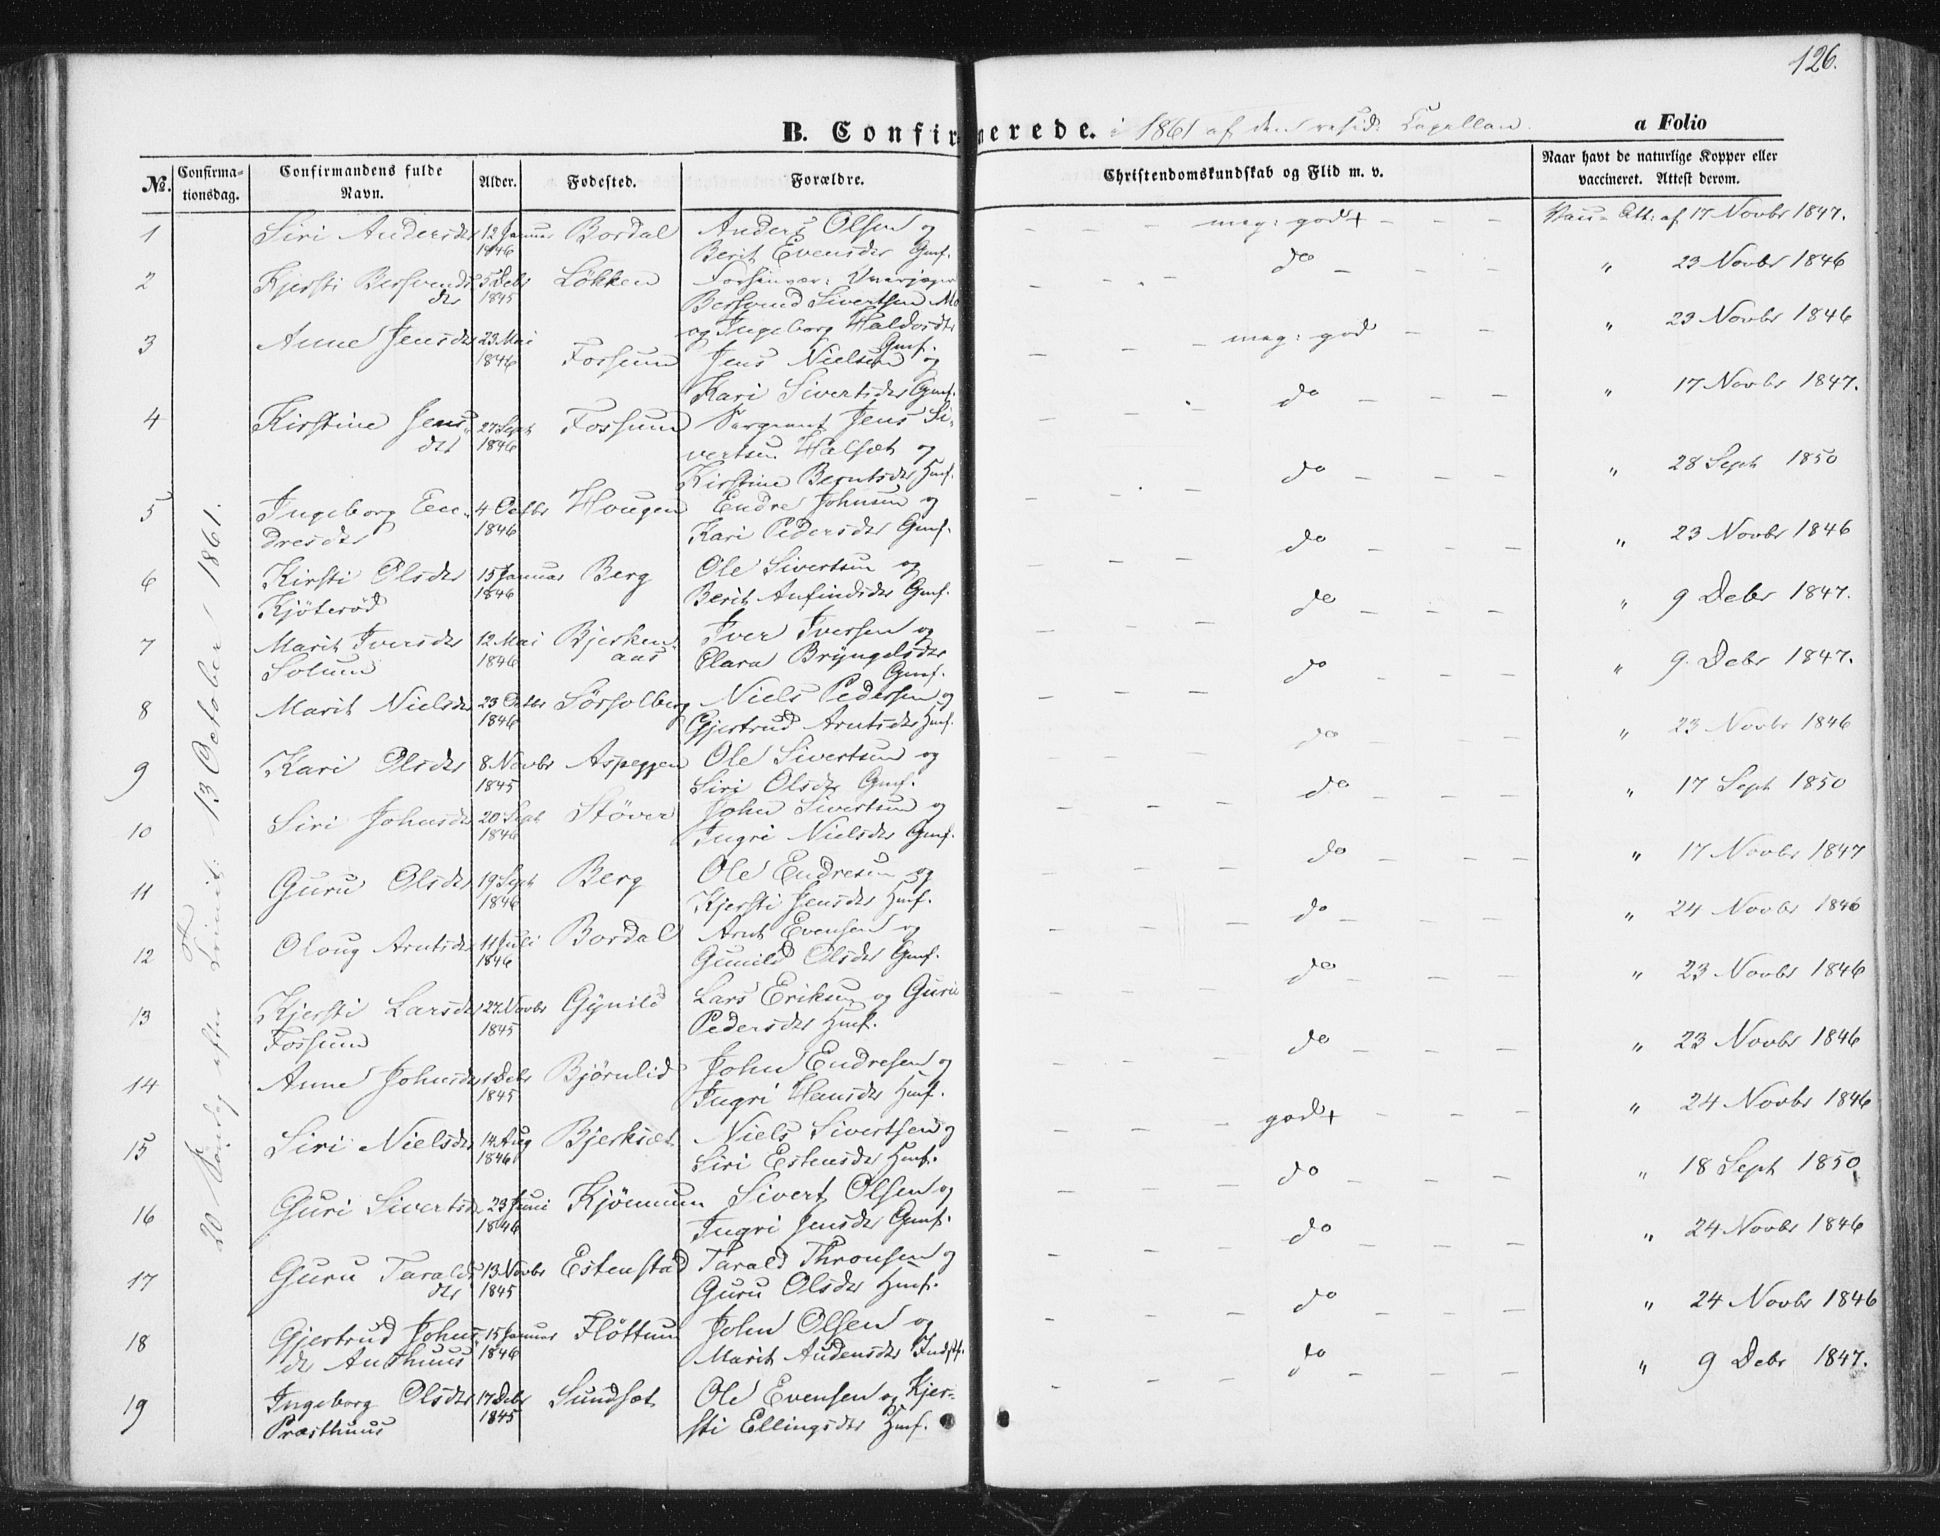 126.
B. Confirmerede. i 1861 af den resid: Capellan.
a Folio
No. Confirmationsdag. Confirmandens fulde Navn. Alder. Fødested. Forældre. Christendomskundskab og Flid m. v. Naar havt de naturlige Kopper eller vaccineret. Attest derom.
20 Søndag efter Trinit: 13 October 1861.
1 Siri Andersdr 12 Januar Bordal Anders Olsen og mag: god+ Att: af 17 Novbr 1847.
1846 Berit Evensdr Gmf.
2 Kjersti Bersvends 5 Debr Løkken do " 23 Novbr 1846
dr 1845 Bersvend Sivertsen Mo
og Ingeborg Haldosdr
Gmf.
3 Anne Jensdr 23 Mai Fossum Jens Nielsen og mag: god " 23 Novbr 1846
1846 Kari Sivertsdr Gmf.
4 Kirstine Jens 27 Sept Fossum Sergeant Jens Si- do " 17 Novbr 1847.
dr 1846 vertsen Halsæt og
Kirstine Berntsdr Hmf.
5 Ingeborg En- 4 Octbr Hougen Endre Johnsen og do " 28 Sept 1850
dresdr 1846 Kari Pedersdr Gmf.
6 Kirsti Olsdr 15 Januar Berg Ole Sivertsen og do " 23 Novbr 1846
Kjøterød 1846 Berit Anfindsdr Gmf.
7 Marit Iversdr 12 Mai Bjerken- Iver Iversen og do " 9 Debr 1847.
Solum 1846 aas Clara Bryngelsdr
Gmf.
8 Marit Nielsdr 23 Octbr Sørsolberg Niels Pedersen og do " 9 Debr 1847.
1846 Gjertrud Arntsdr Hmf.
9 Kari Olsdr 8 Novbr Aspeggen Ole Sivertsen og do " 23 Novbr 1846
1845 Siri Olsdr Gmf.
10 Siri Johnsdr 20 Sept Støver John Sivertsen og do " 17 Sept 1850
1846 Ingri Nielsdr Gmf.
11 Guru Olsdr 19 Sept Berg Ole Endresen og do " 17 Novbr 1847
1846 Kjersti Jensdr Hmf.
12 Oloug Arntsdr 11 Juli Bordal Arnt Evensen og do " 24 Novbr 1846
1846 Gunild Olsdr Gmf.
13 Kjersti Larsdr 27 Novbr Gynild Lars Eriksen og Guru do " 23 Novbr 1846
Fossum 1845 Pedersdr Hmf.
14 Anne Johnsdr 1 Debr Bjørnlid John Endresen og do " 23 Novbr 1846
1845 Ingri Hansdr Hmf.
15 Siri Nielsdr 14 Aug Bjerksæt Niels Sivertsen og god+ " 24 Novbr 1846
1846 Siri Estensdr Hmf.
16 Guri Sivertsdr 23 Juni Kjønmum Sivert Olsen og do " 18 Sept 1850
1846 Ingri Jensdr Gmf.
17 Guru Taralds 13 Novbr Estenstad Tarald Thronsen og do " 24 Novbr 1846
dr 1845 Guru Olsdr Hmf.
18 Gjertrud Johns 15 Januar Fløttum John Olsen og do " 24 Novbr 1846
dr Anthuus 1846 Marit Audensdr Indst.
19 Ingeborg Olsdr 17 Debr Sundsæt Ole Evensen og Kjer- do " 9 Debr 1847.
Præsthuus 1845 sti Ellingsdr Hmf.